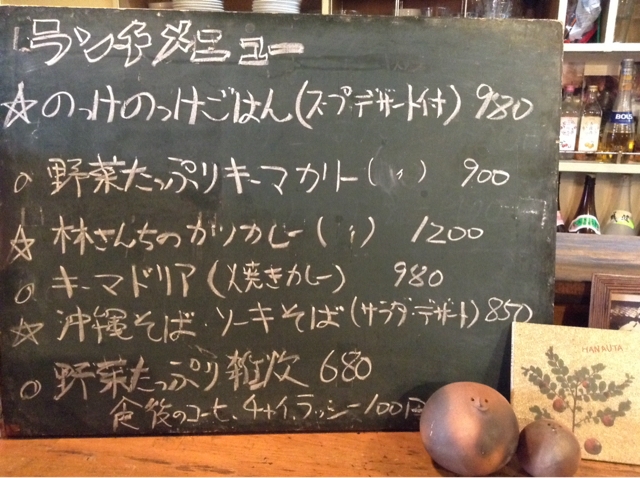 ランチメニュー
☆のっけのっけごはん(スープデザート付) 980
○野菜たっぷりキーマカリー(〃) 900
☆林さんちのカツカレー(〃) 1200
○キーマドリア(焼きカレー) 980
☆沖縄そば・ソーキそば(サラダ・デザート) 850
○野菜たっぷり雑炊 680
食後のコーヒ、チャイ、ラッシー100円
HANAUTA
BOLS